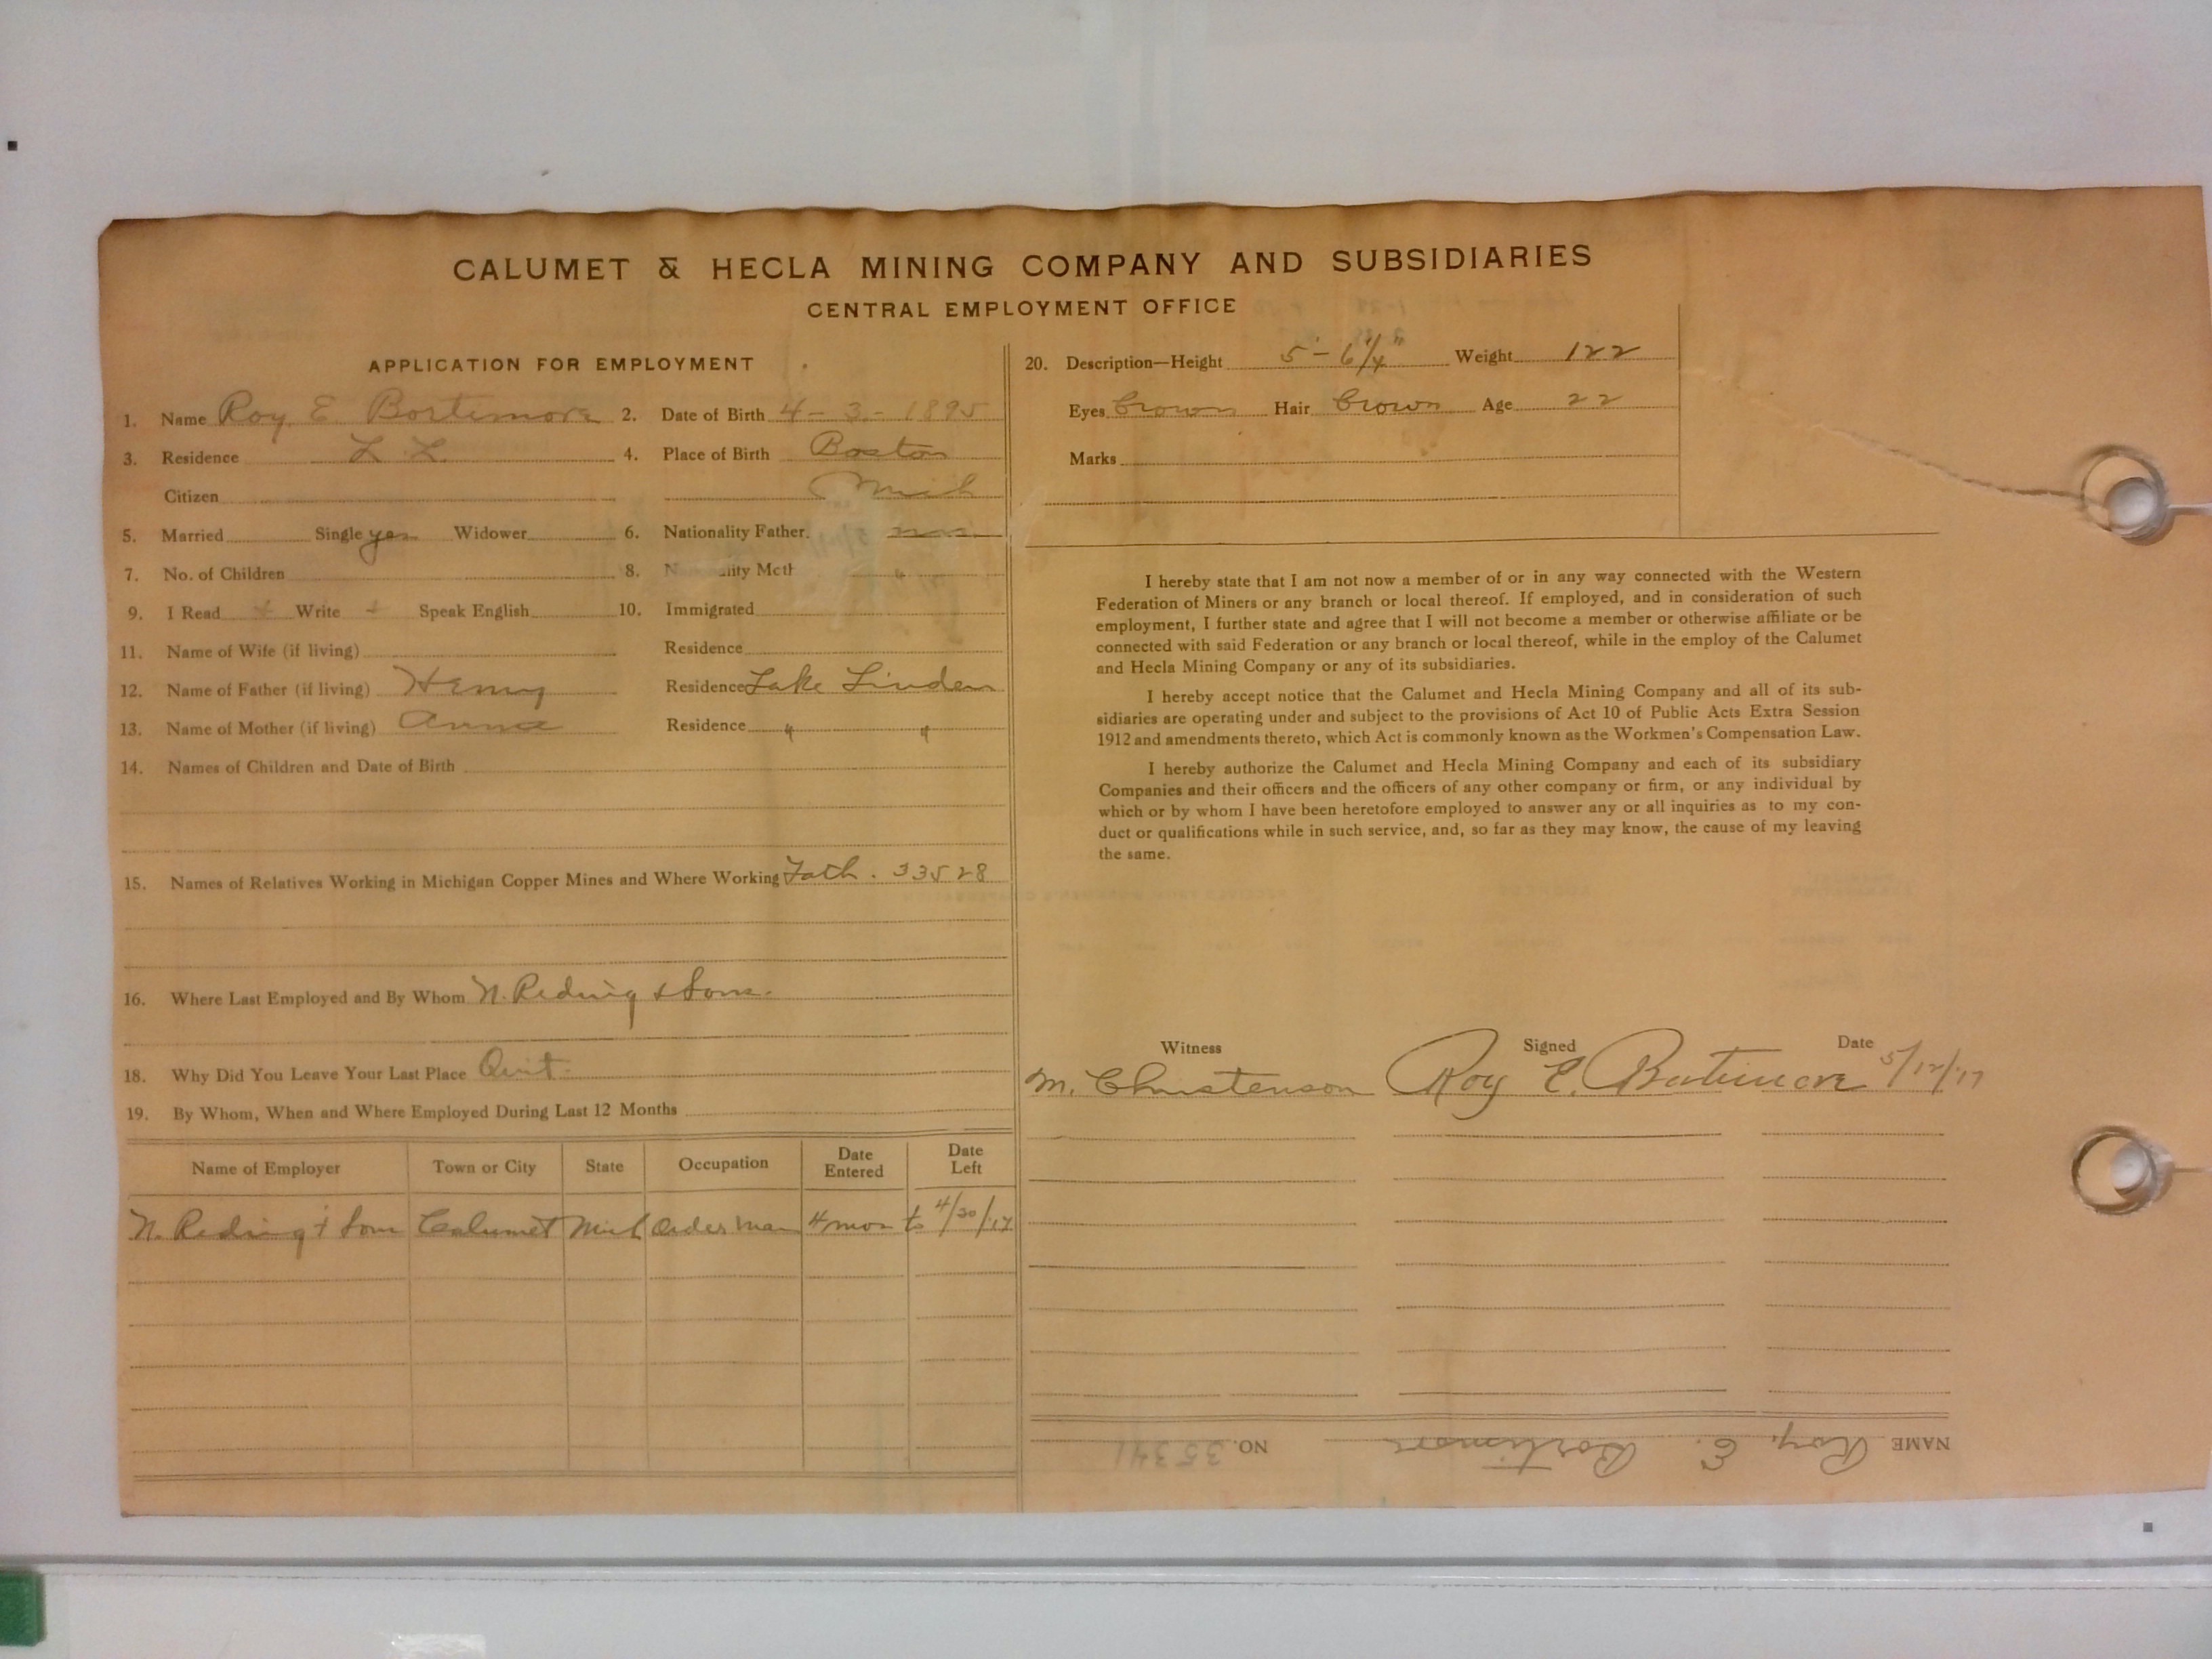 CALUMET & HECLA MINING COMPANY AND SUBSIDIARIES
CENTRAL EMPLOYMENT OFFICE
APPLICATION FOR EMPLOYMENT
1. Name Roy E Bortimore 2. Date of Birth 4-3-1895
3. Residence L L 4. Place of Birth Boston
Citizen Mich
5. Married Single yes Widower 6. Nationality Father
7. No. of Children 8. "
9. I Read + Write + Speak English 10. Immigrated
11. Name of Wife (if living) Residence
12. Name of Father (if living) Henry Residence Lake Linden
13. Name of Mother (if living) Anna Residence " "
14. Names of Children and Date of Birth
15. Names of Relatives Working in Michigan Copper Mines and Where Working Fath. 33528
16. Where Last Employed and By Whom N. Reding & Sons.
18. Why Did You Leave Your Last Place Quit.
19. By Whom, When and Where Employed During Last 12 Months
Name of Employer Town or City State Occupation Date Entered Date Left
N. Reding + Sons Calumet Mich Order man 4 mos to 4/30/17
20. Description—Height 5'-6 1/4" Weight 122
Eyes brown Hair brown Age 22
Marks
I hereby state that I am not now a member of or in any way connected with the Western
Federation of Miners or any branch or local thereof. If employed, and in consideration of such
employment, I further state and agree that I will not become a member or otherwise affiliate or be
connected with said Federation or any branch or local thereof, while in the employ of the Calumet
and Hecla Mining Company or any of its subsidiaries.
I hereby accept notice that the Calumet and Hecla Mining Company and all of its sub-
sidiaries are operating under and subject to the provisions of Act 10 of Public Acts Extra Session
1912 and amendments thereto, which Act is commonly known as the Workmen's Compensation Law.
I hereby authorize the Calumet and Hecla Mining Company and each of its subsidiary
Companies and their officers and the officers of any other company or firm, or any individual by
which or by whom I have been heretofore employed to answer any or all inquiries as to my con-
duct or qualifications while in such service, and, so far as they may know, the cause of my leaving
the same.
Witness Signed Date
M. Christenson Roy E. Bortimore 5/12/17
NAME Roy, E. Bortimore NO. 35341